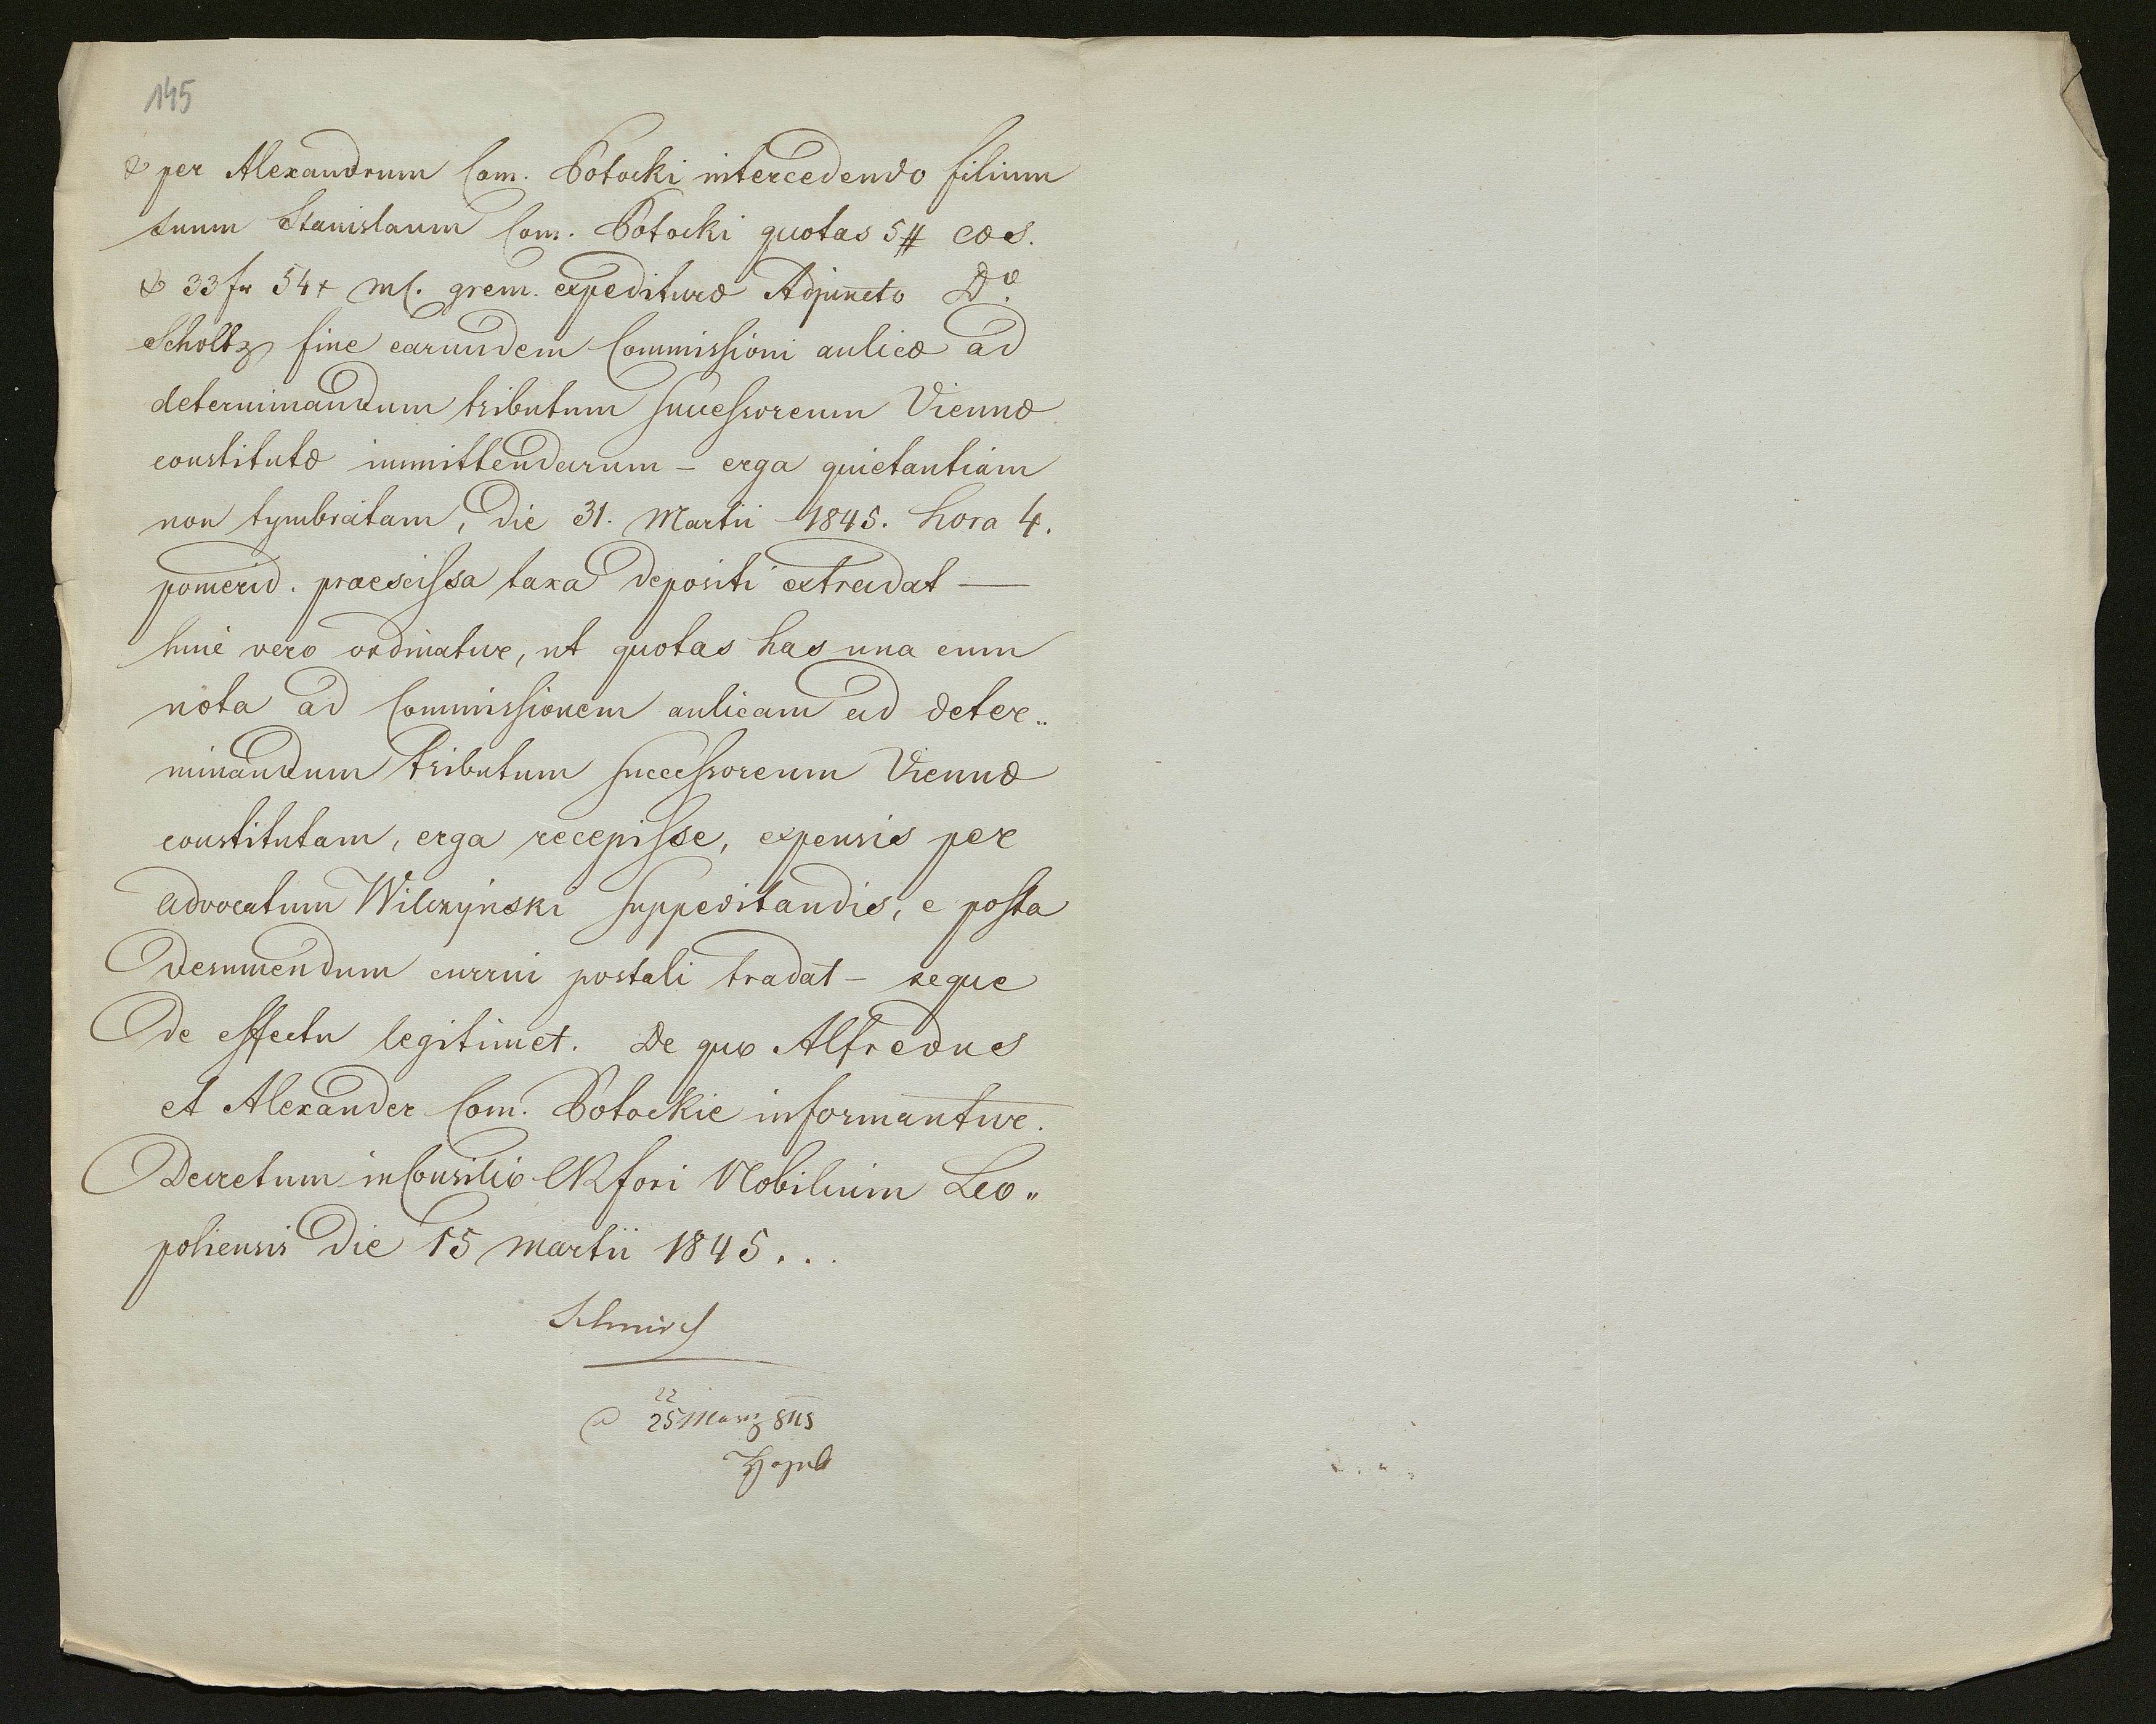 145
& per Alexandrum Com. Potocki intercedendo filium
suum Stanislaum Com. Potocki quotas 5# caes.
& 33 fr 54 x MC. grem. expediturae Adjuncto Do
Scholtz fine earundem Commissioni aulicae ad
determinandum tributum successoreum Viennae
constitutae immittendarum – erga quietantiam
non tymbratam, die 31. Martii 1845. hora 4.
pomerid. praescissa taxa depositi extradat —
huic vero ordinatur, ut quotas has una cum
nota ad Commissionem aulicam ad deter„
minandum tributum successoreum Viennae
constitutam, erga recepisse, expensis per
advocatum Wilczyński suppeditandis, e posta
desumendum currui postali tradat – seque
de effectu legitimet. De quo Alfredus
et Alexander Com. Potockie informantur.
Decretum in Consilio CR fori Nobilium Leo„
poliensis die 15 martii 1845...
Schmid
22
25 Marz 845